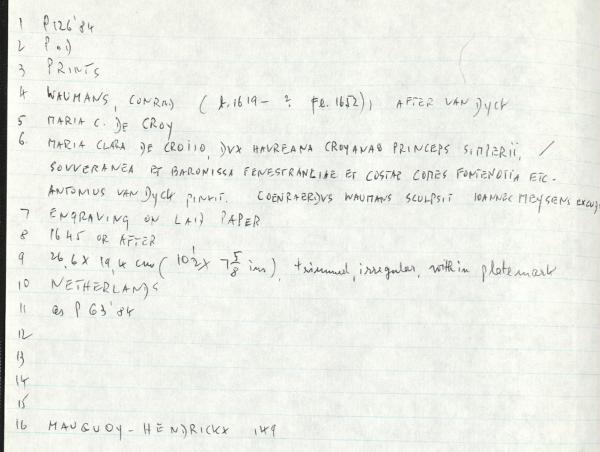 1 P126'84
2
3 PRINTS
4 WAUMANS, CONRAD (b. 1619 - ? fl. 1652), AFTER VAN DYCK
5 MARIA C. DE CROY
6. MARIA CLARA DE CROIIO, DVX HAVREANA CROYANAO PRINCEPS SIMPERII, /
SOUVERANEA ET BARONISSA FENESTRANGIAE ET COSTAE COMES FONTENOTIA ETC.
ANTONIUS VAN DYCK PINXIT. COENRAERDVS WAUMANS SCULPSIT IOANNEC MEYSENS EXCUD
7 ENGRAVING ON LAID PAPER
8 1645 OR AFTER
9 26.6 X 19.4 cm (10 1/2 X 7 5/8 ins), trimmed, irregular, within platemark
10 NETHERLANDS
11 as P 63'84
12
13
14
15
16 MAUQUOY-HENDRICKX 149